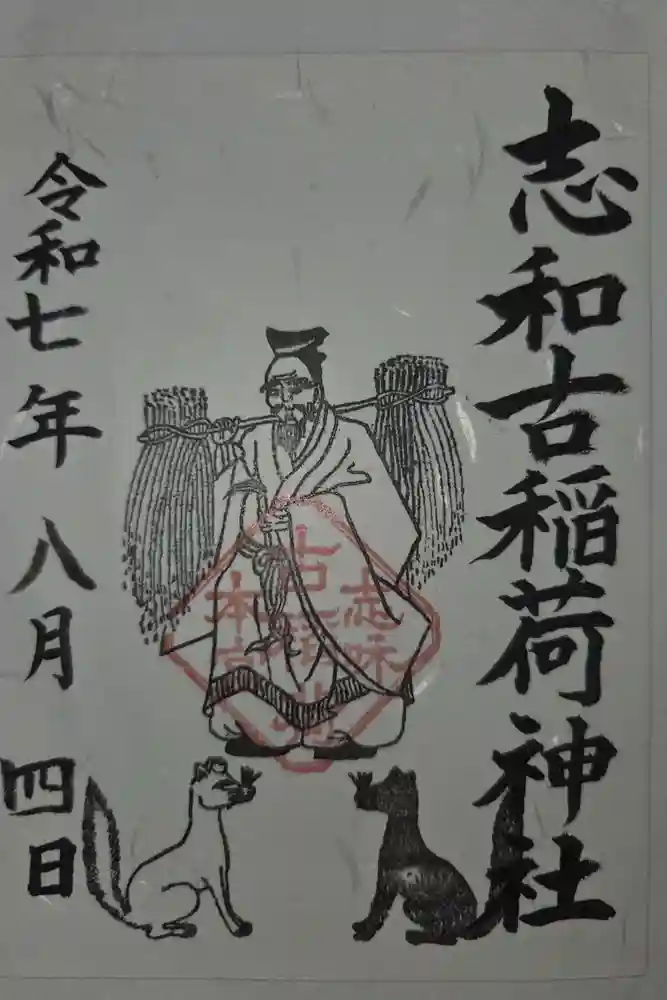 志和古稲荷神社
志味
古稲荷
本宮
令和七年 八月 四日